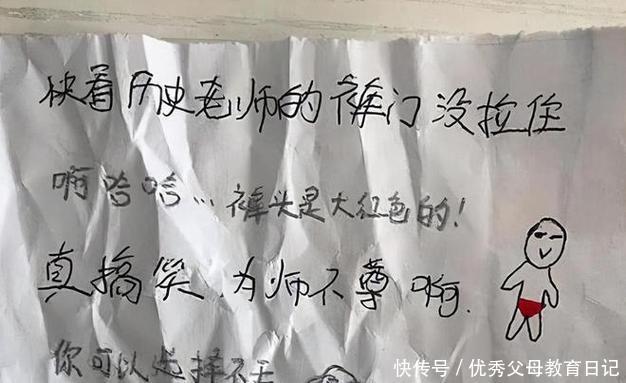 快看历史老师的裤门没拉住
啊哈哈…裤头是大红色的!
真搞笑.为师不尊啊.
你可以选择不
快传号/优秀父母教育日记